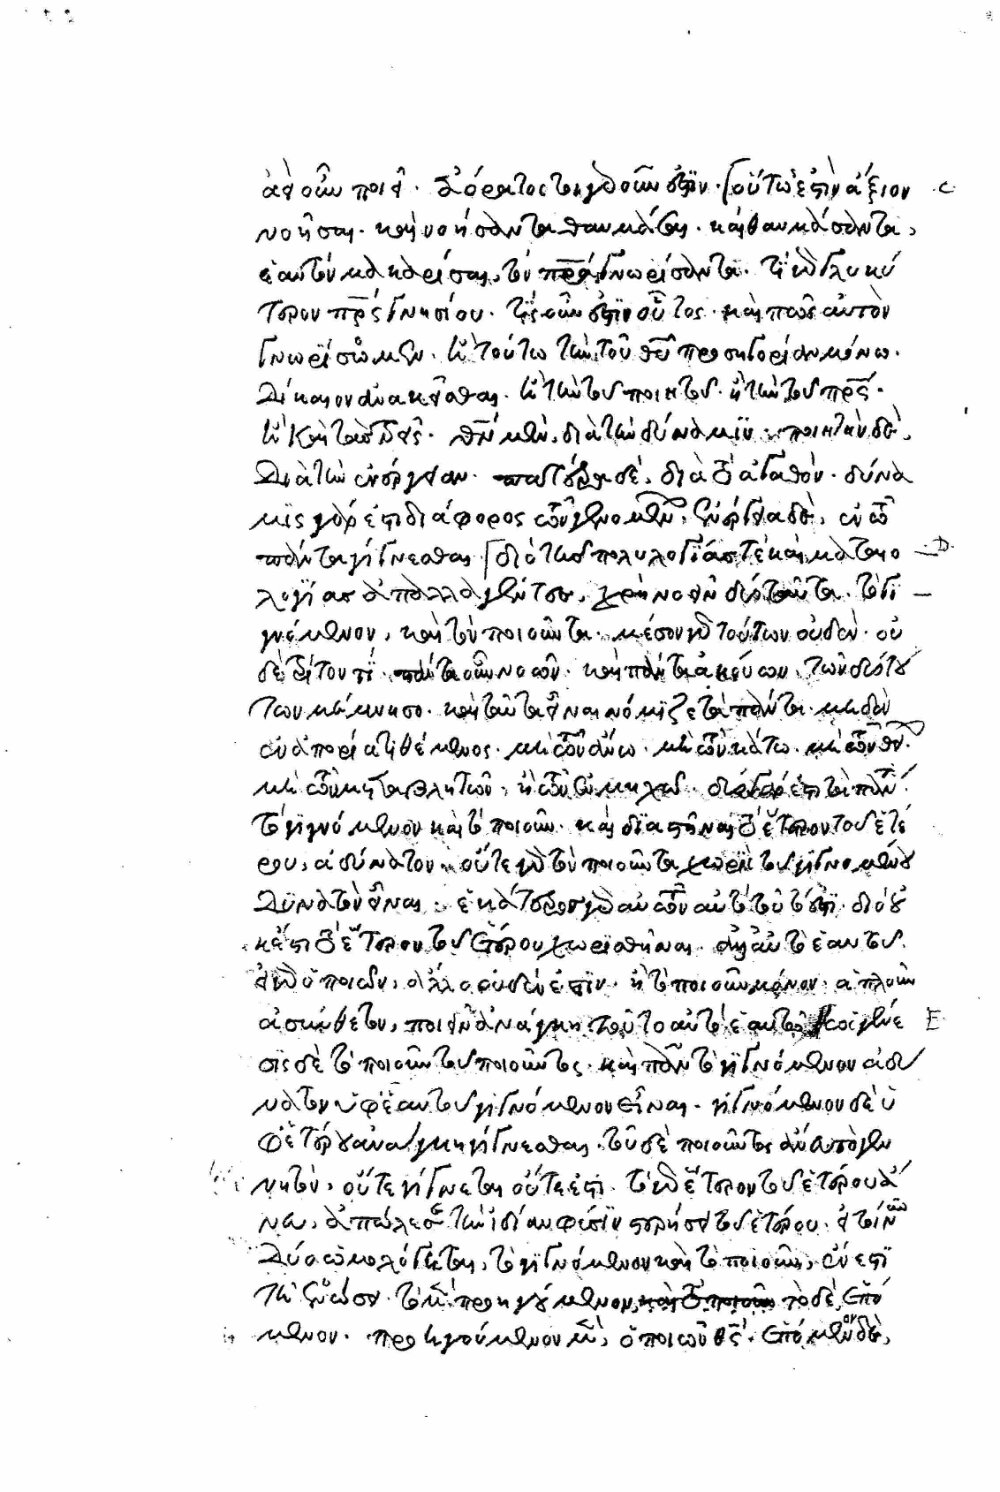 ἀεὶ οὖν ποιεῖ· ἀόρατος τοιγαροῦν ἐστϊν· οὕτω ἐστὶν ἄξιον C
νοῆσαι· καὶ νοήσαντα θαυμάσαι· καὶ θαυμάσαντα,
ἑαυτὸν μακαρίσαι, τὸν πρα γνωρίσαντα· τί γὰρ γλυκύ
τερον πρς γνησίου· τίς οὖν ἐστϊν οὗτος· καὶ πῶς αὐτὸν
γνωρίσωμεν· ἢ τούτω τὴν τοῦ θῦ προσηγορίαν μόνω·
δίκαιον ἀνακεῖσθαι· ἢ τὴν τοῦ ποιητοῦ· ἢ τὴν τοῦ πρς·
ἢ καὶ τὰς τρεῖς· θν μὲν, διὰ τὴν δύναμϊν· ποιητὴν δὲ,
διὰ τὴν ἐνέργειαν· πατέρα δὲ, διὰ τὸ ἀγαθόν· δύνα
μϊς γάρ ἐστι διάφορος τῶν γενομένων, ἐνέργεια δὲ, ἐν τῶ
πάντα γίγνεσθαι διὸ τῆς πολυλογίας τὲ καὶ ματαιο D
λογίας ἀπαλλαγέντας, χρὴ νοεῖν δύο ταῦτα· τὸ γι
γνόμενον, καὶ τὸν ποιοῦντα· μέσον γὰρ τούτων οὐδὲν· οὐ
δὲ τρίτον τί· πάντα οὖν νοῶν· καὶ πάντα ἀκούων, τῶν δύο τού
των μέμνησο· καὶ ταῦτα εἶναι νόμιζε τὰ πάντα· μηδὲν
ἐν ἀπορία τιθέμενος· μὴ τῶν ἄνω· μὴ τῶν κάτω· μὴ τῶν θείων·
μὴ τῶν μεταβλητῶν· ἢ τῶν ἐν μυχῶ· δύο γάρ ἐστι τὰ πάντα·
τὸ γϊγνόμενον καὶ τὸ ποιοῦν· καὶ διαστῆναι τὸ ἕτερον τοῦ ἑτέ
ρου, ἀδύνατον· οὔτε γὰρ τὸν ποιοῦντα χωρὶς τοῦ γιγνομένου
δυνατὸν εἶναι· ἑκάτερος γὰρ αὐτῶν αὐτὸ τοῦτό ἐστι· διὸ οὐ
κ ἔστι τὸ ἕτερον τοῦ ἑτέρου χωρισθῆναι· ἀλλ' αὐτὸ ἑαυτοῦ.
εἰ γὰρ ὁ ποιῶν, ἄλλο οὐδέν ἐστϊν· ἢ τὸ ποιοῦν μόνον· ἁπλοῦν
ἀσύνθετον, ποιεῖν ἀνάγκη τοῦτο αὐτὸ ἑαυτῶ γένε E
σϊς δὲ τὸ ποιοῦν τοῦ ποιοῦντος· καὶ πᾶν τὸ γϊγνόμενον ἀδύ
νατον ὑφ' ἑαυτοῦ γιγνόμενον εἶναι· γιγνόμενον δὲ ὑ
φ' ἑτέρου ἀνάγκη γίγνεσθαι· τοῦ δὲ ποιοῦντος ἄνευ τὸ γεν
νητὸν, οὔτε γίγνεται οὔτε ἐστι· τὸ γὰρ ἕτερον τοῦ ἑτέρου ἄ
νευ, ἀπώλεσε τὴν ἰδίαν φύσϊν στερήσει τοῦ ἑτέρου· εἰ τοίνυν
δύο ὡμολόγηται, τὸ γϊγνόμενον καὶ τὸ ποιοῦν, ἕν ἐστϊ
τῆ ἑνώσει· τὸ μὲν προηγούμενον, καὶ τὸ ποιοῦν τὸ δὲ, ἑπό
μενον· προηγούμενον μὲν, ὁ ποιῶν θς· ἑπόμενον δὲ,